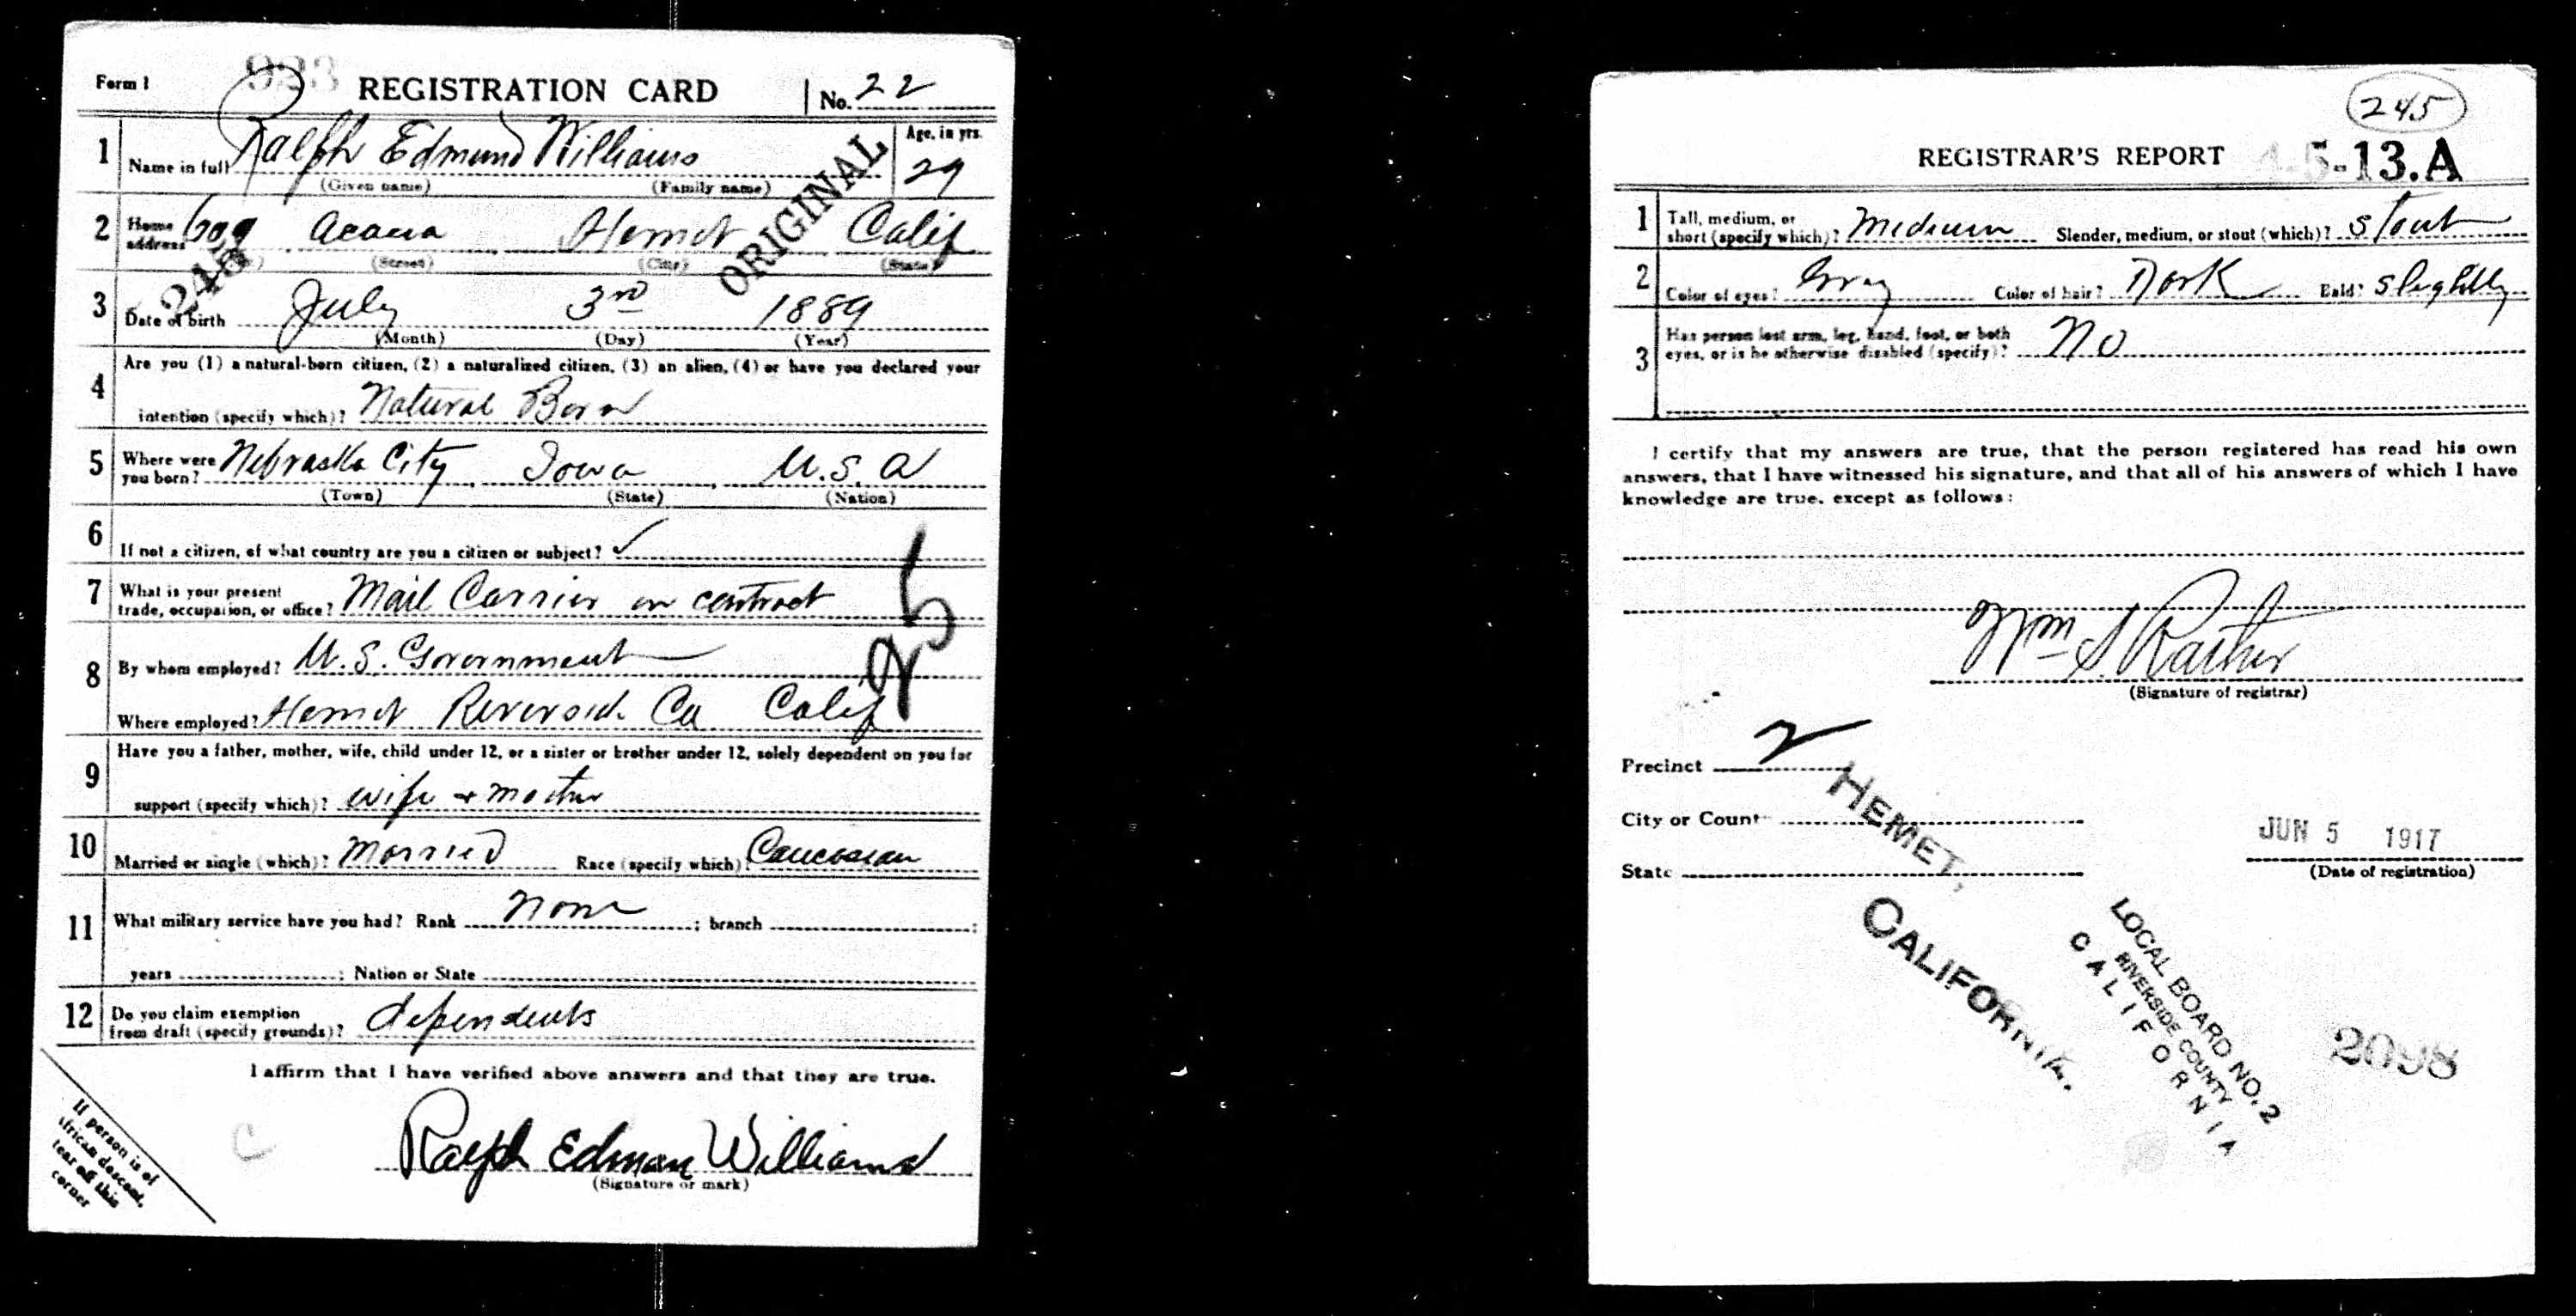 Form 1 923 REGISTRATION CARD No. 22
1 Name in full Ralph Edmund Williams Age, in yrs. 29
(Given name) (Family name)
ORIGINAL
2 Home address 609 Acacia Hemet Calif
(Street) (City) (State)
245
3 Date of birth July 3rd 1889
(Month) (Day) (Year)
4 Are you (1) a natural-born citizen, (2) a naturalized citizen, (3) an alien, (4) or have you declared your
intention (specify which)? Natural Born
5 Where were you born? Nebraska City, Iowa, U.S.A
(Town) (State) (Nation)
6 If not a citizen, of what country are you a citizen or subject? ✓
7 What is your present trade, occupation, or office? Mail Carrier on contract
25
8 By whom employed? U.S. Government
Where employed? Hemet Riverside Co Calif
9 Have you a father, mother, wife, child under 12, or a sister or brother under 12, solely dependent on you for
support (specify which)? wife + mother
10 Married or single (which)? Married Race (specify which)? Caucasian
11 What military service have you had? Rank None ; branch ;
years ; Nation or State
12 Do you claim exemption from draft (specify grounds)? dependents
I affirm that I have verified above answers and that they are true.
C
Ralph Edman Williams
(Signature or mark)
If person is of
African descent,
tear off this
corner
245
REGISTRAR'S REPORT 4-5-13.A
1 Tall, medium, or short (specify which)? Medium Slender, medium, or stout (which)? stout
2 Color of eyes? Gray Color of hair? Dark Bald? Slightly
3 Has person lost arm, leg, hand, foot, or both
eyes, or is he otherwise disabled (specify)? No
I certify that my answers are true, that the person registered has read his own
answers, that I have witnessed his signature, and that all of his answers of which I have
knowledge are true, except as follows:
Wm S. Rather
(Signature of registrar)
Precinct 2
City or Count
State
HEMET,
CALIFORNIA.
JUN 5 1917
(Date of registration)
LOCAL BOARD NO. 2
RIVERSIDE COUNTY
CALIFORNIA
2098